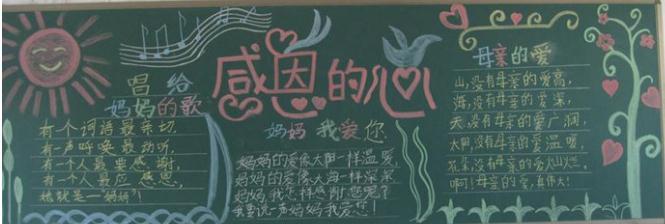 感恩的心
唱给
妈妈的歌
有一个词语最亲切,
有一声呼唤最动听,
有一个人最要感谢,
有一个人最应感恩,
她就是—"妈妈"!
妈妈我爱你
妈妈的爱像太阳一样温暖,
妈妈的爱像大海一样深深
妈妈我怎样感谢您呢?
我要说一声妈妈我爱您!
母亲的爱
山,没有母亲的爱高,
海,没有母亲的爱深,
天,没有母亲的爱广阔,
太阳,没有母亲的爱温暖,
花朵,没有母亲的爱灿烂,
啊!母亲的爱,真伟大!